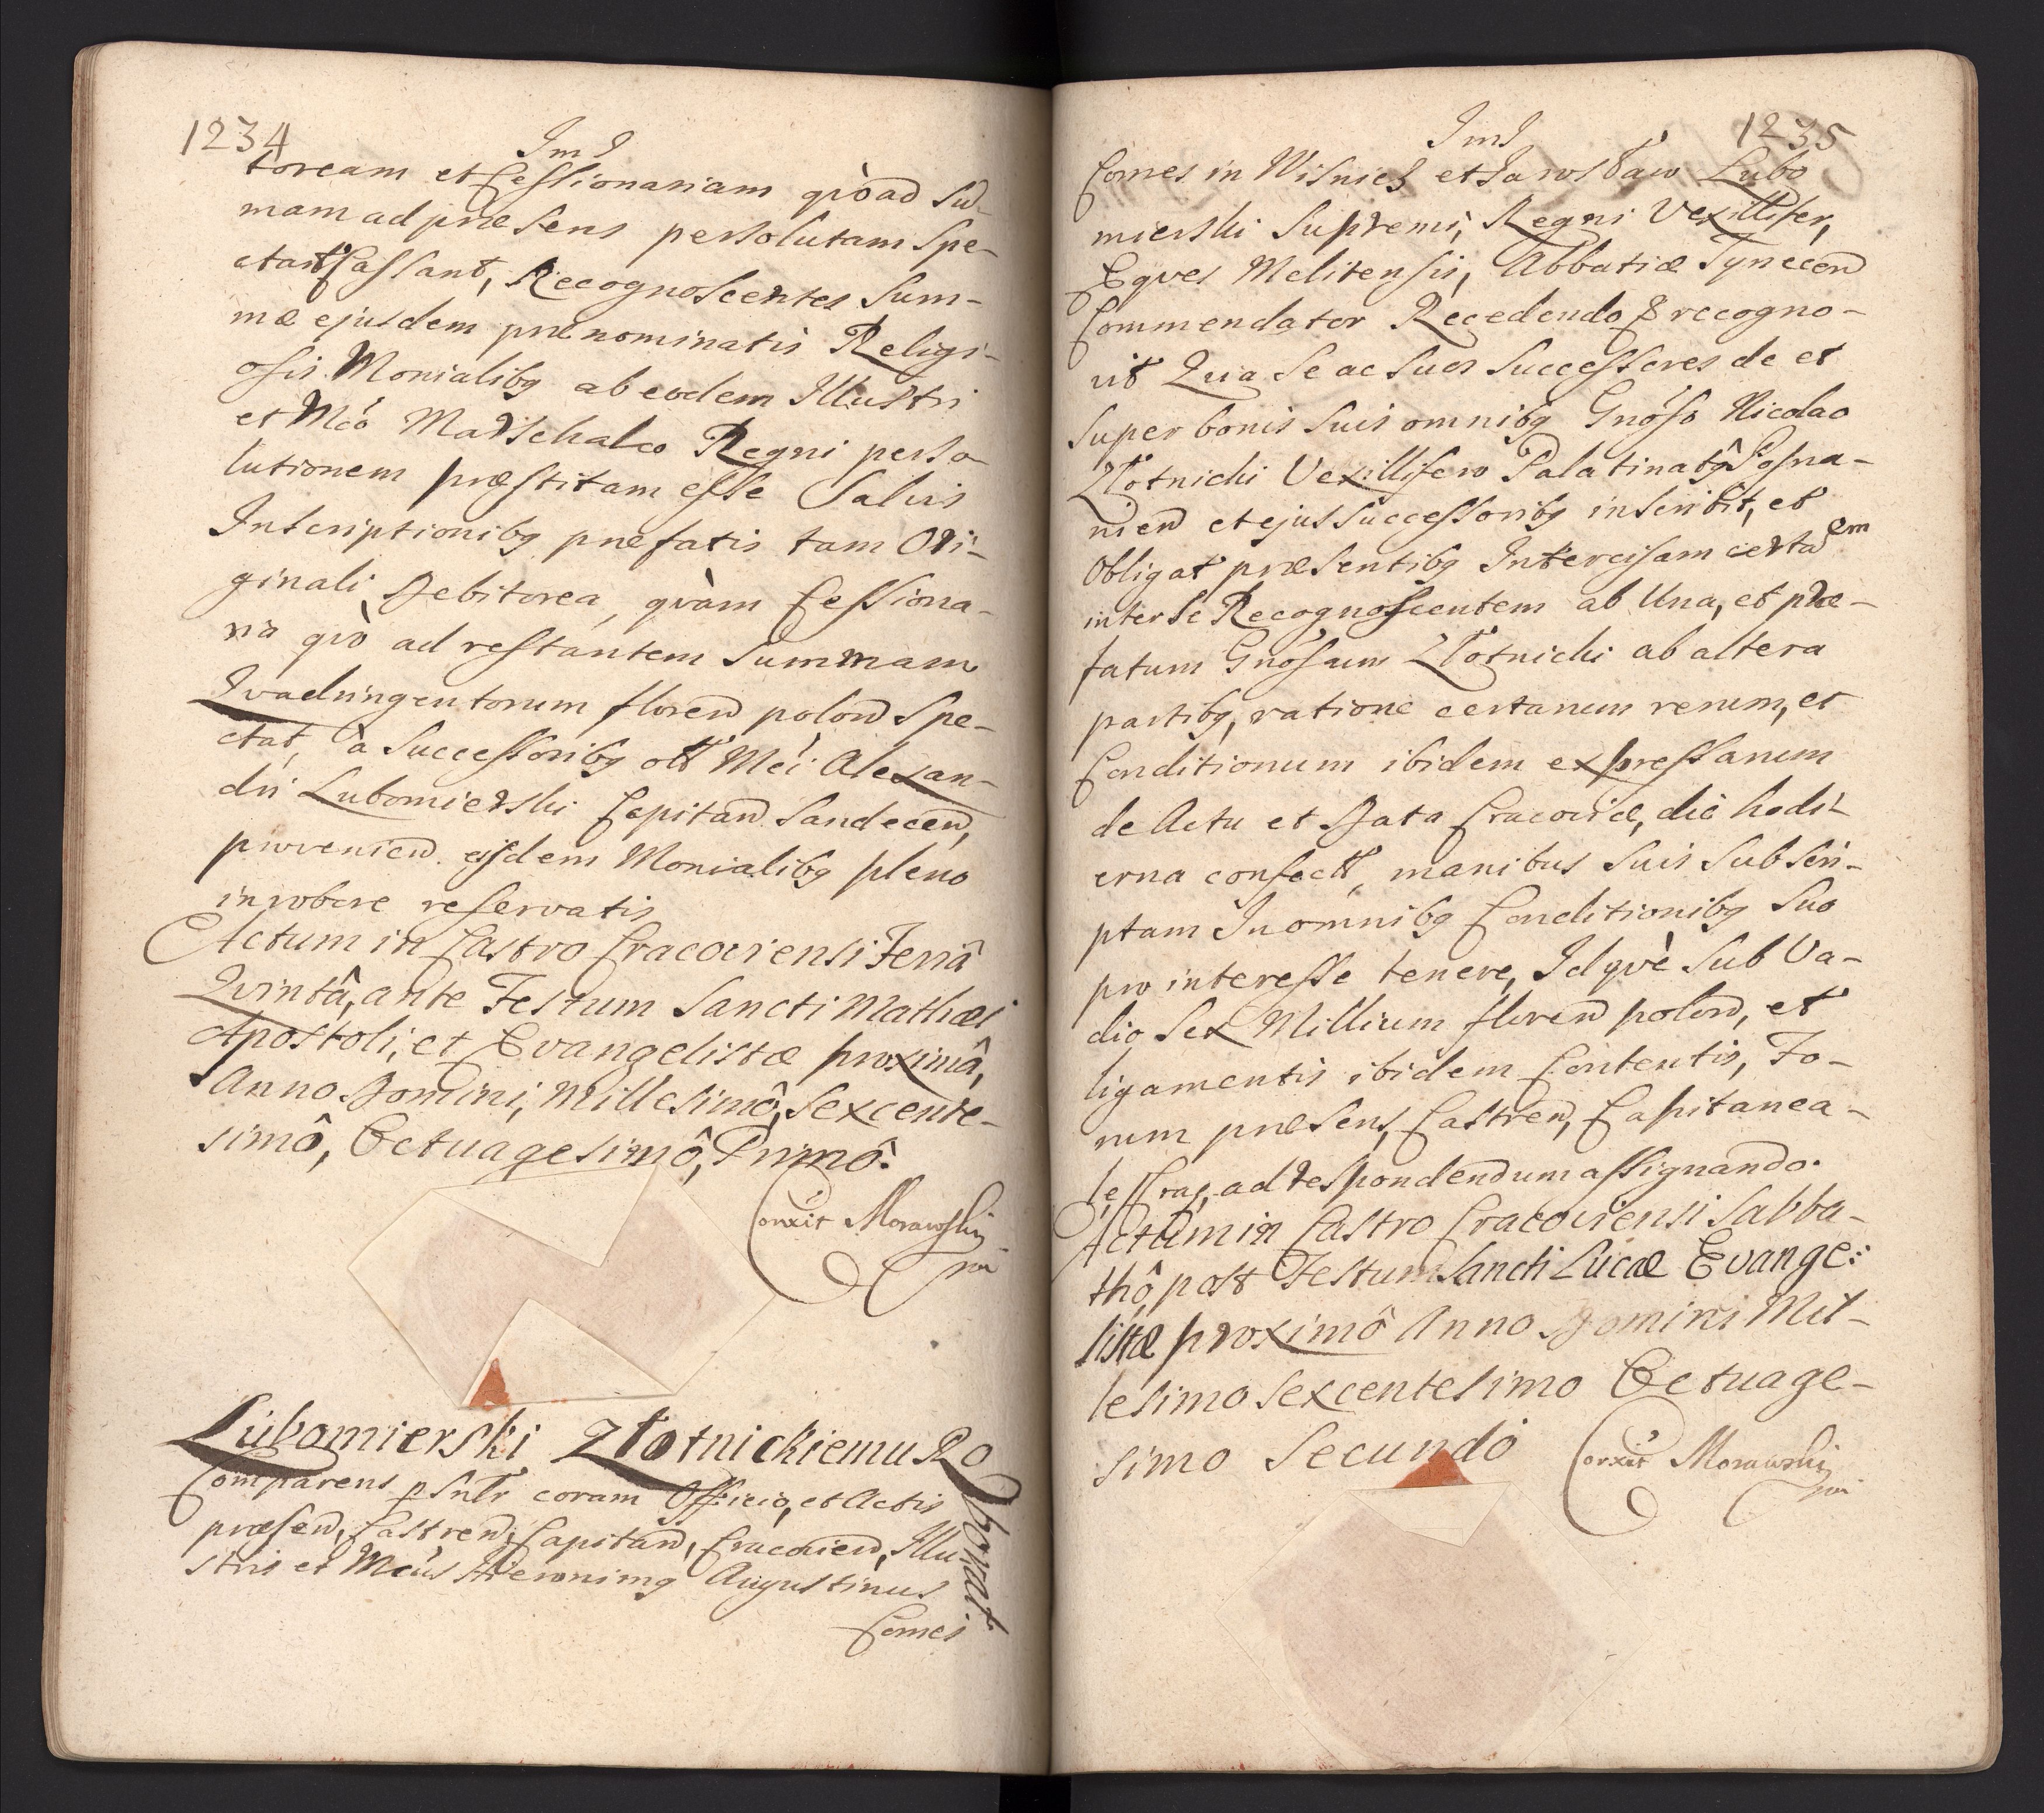 1234
Jmś
toream et Cessionariam qvò ad Su-
mam ad præsens persolutam Spe-
ctant Cassant, Recognoscentes Sum-
mæ ejusdem prænominatis Religi-
osis Monialibq ab eodem Illustri
et Mcó Marschalco Regni perso-
lutionem præstitam esse Salvis
Inscriptionibq præfatis tam Ori-
ginali Debitorea, qvàm Cessiona-
ria qvò ad restantem Summam
Qvadringentorum floren polon Spe-
ctat, à Successoribq olt Mci Alexan-
dri Lubomierski Capitan Sandecen,
provenien. eisdem Monialibq pleno
in robore reservatis
Actum in Castro Cracoviensi Feriâ
Qvintâ, ante Festum Sancti Mathæi
Apostoli, et Evangelistæ proximâ,
Anno Domini, Millesimô, Sexcente-
simô, Octuagesimô, Primô.
Corxit Morawski
mp
Lubomierski Złotnickiemu Ro
borat.
Comparens psntr coram Officio, et Actis
præsen, Castren, Capitan, Cracovien, Illu-
stris et Mcus Hieronimq Augustinus
Comes
1235
Jmś
Comes in Wisnicz et Jarosław Lubo
mierski Supremi, Regni Vexillifer,
Eqves Melitensis, Abbatiæ Tynecen
Commendator Recedendo & recogno-
vit Quia Se ac Suos Successores de et
Super bonis Suis omnibq Gnoso Nicolao
Złotnicki Vexillifero Palatinatq Posna-
nien et ejus Successoribq inscribit, et
Obligat præsentibq Intercisam certam
inter Se Recognoscentem ab Una, et præ-
fatum Gnosum Złotnicki ab altera
partibq, ratione certarum rerum, et
Conditionum ibidem expressarum
de Actu et Data Cracoviæ, die hodi-
erna confectt, manibus Suis Subscri-
ptam In omnibq Conditionibq Suo
pro interesse tenere, Idqvè Sub Va-
dio Sex Millium floren polon, et
ligamentis ibidem Contentis, Fo-
rum præsens, Castren, Capitanea-
le Crac, ad respondendum assignando.
Actum in Castro Cracoviensi Sabba-
thô post Festum Sancti Lucæ Evange:
listæ proximô Anno Domini Mil-
lesimo Sexcentesimo Octuage-
simo Secundo
Corxit Morawski
mp